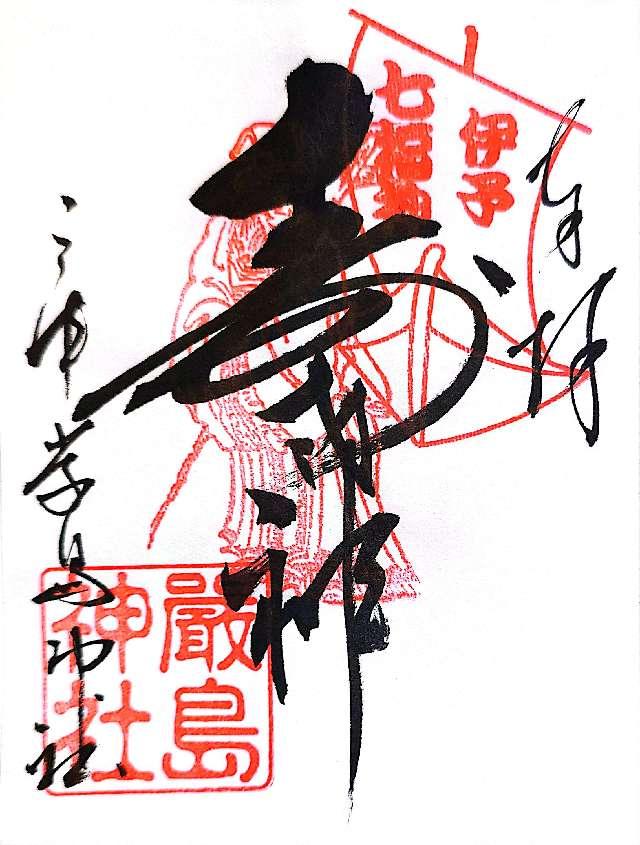 奉拝
伊予
七福神
寿老神
三津厳島神社
嚴島
神社